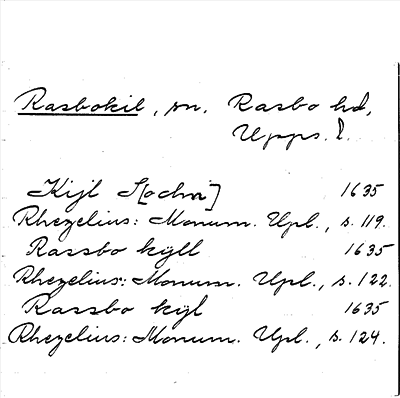 Rasbokil, sn. Rasbo hd,
Upps. l.
Kijl S[ochn] 1635
Rhezelius: Monum. Upl., s. 119.
Rassbo kijll 1635
Rhezelius: Monum. Upl., s. 122.
Rassbo kijl 1635
Rhezelius: Monum. Upl., s. 124.